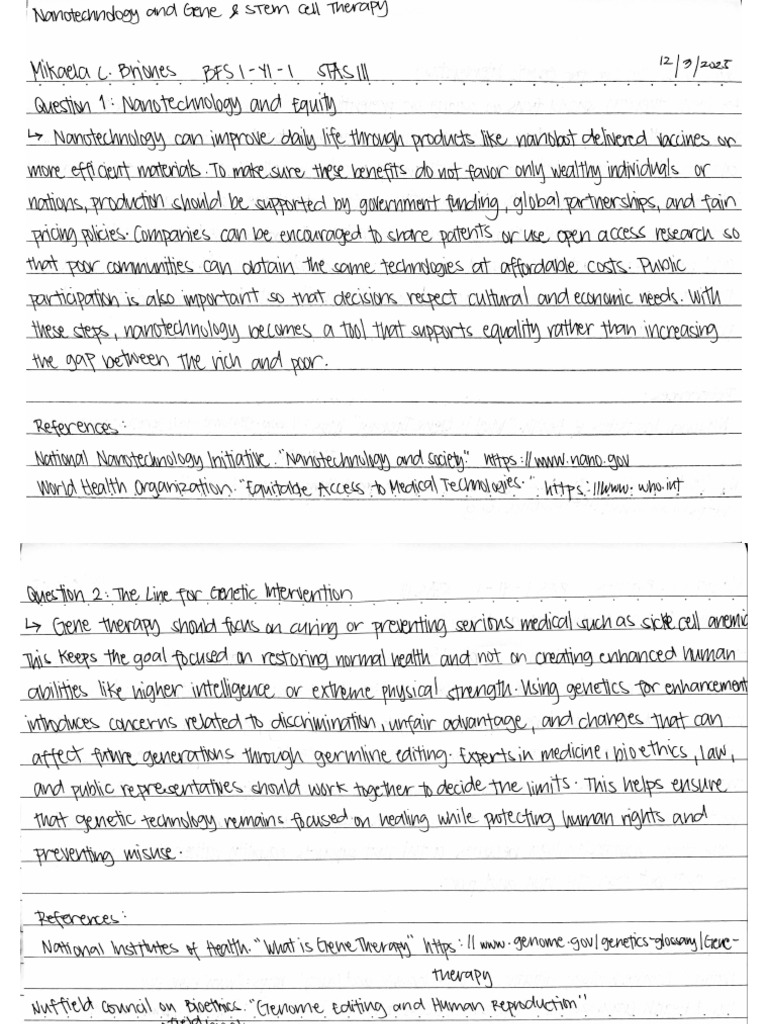 Nanotechnology and Gene & Stem Cell Therapy
Mikaela C. Briones BFS I-Y1-1 STAS 111 12/3/2025
Question 1: Nanotechnology and Equity
↳ Nanotechnology can improve daily life through products like nanobot delivered vaccines or
more efficient materials. To make sure these benefits do not favor only wealthy individuals or
nations, production should be supported by government funding, global partnerships, and fair
pricing policies. Companies can be encouraged to share patents or use open access research so
that poor communities can obtain the same technologies at affordable costs. Public
participation is also important so that decisions respect cultural and economic needs. With
these steps, nanotechnology becomes a tool that supports equality rather than increasing
the gap between the rich and poor.
References:
National Nanotechnology Initiative. "Nanotechnology and Society." https://www.nano.gov
World Health Organization. "Equitable Access to Medical Technologies." https://www.who.int
Question 2: The Line for Genetic Intervention
↳ Gene therapy should focus on curing or preventing serious medical such as sickle cell anemia
This keeps the goal focused on restoring normal health and not on creating enhanced human
abilities like higher intelligence or extreme physical strength. Using genetics for enhancement
introduces concerns related to discrimination, unfair advantage, and changes that can
affect future generations through germline editing. Experts in medicine, bioethics, law,
and public representatives should work together to decide the limits. This helps ensure
that genetic technology remains focused on healing while protecting human rights and
preventing misuse.
References:
National Institutes of Health. "What is Gene Therapy" https://www.genome.gov/genetics-glossary/Gene-
therapy
Nuffield Council on Bioethics. "Genome Editing and Human Reproduction"